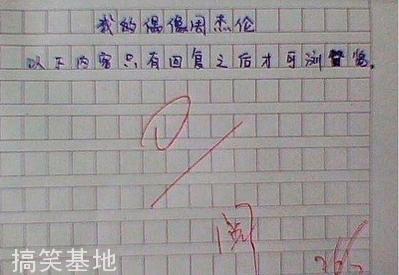 我的偶像周杰伦
以下内容只有回复之后才可浏览。
阅
搞笑基地